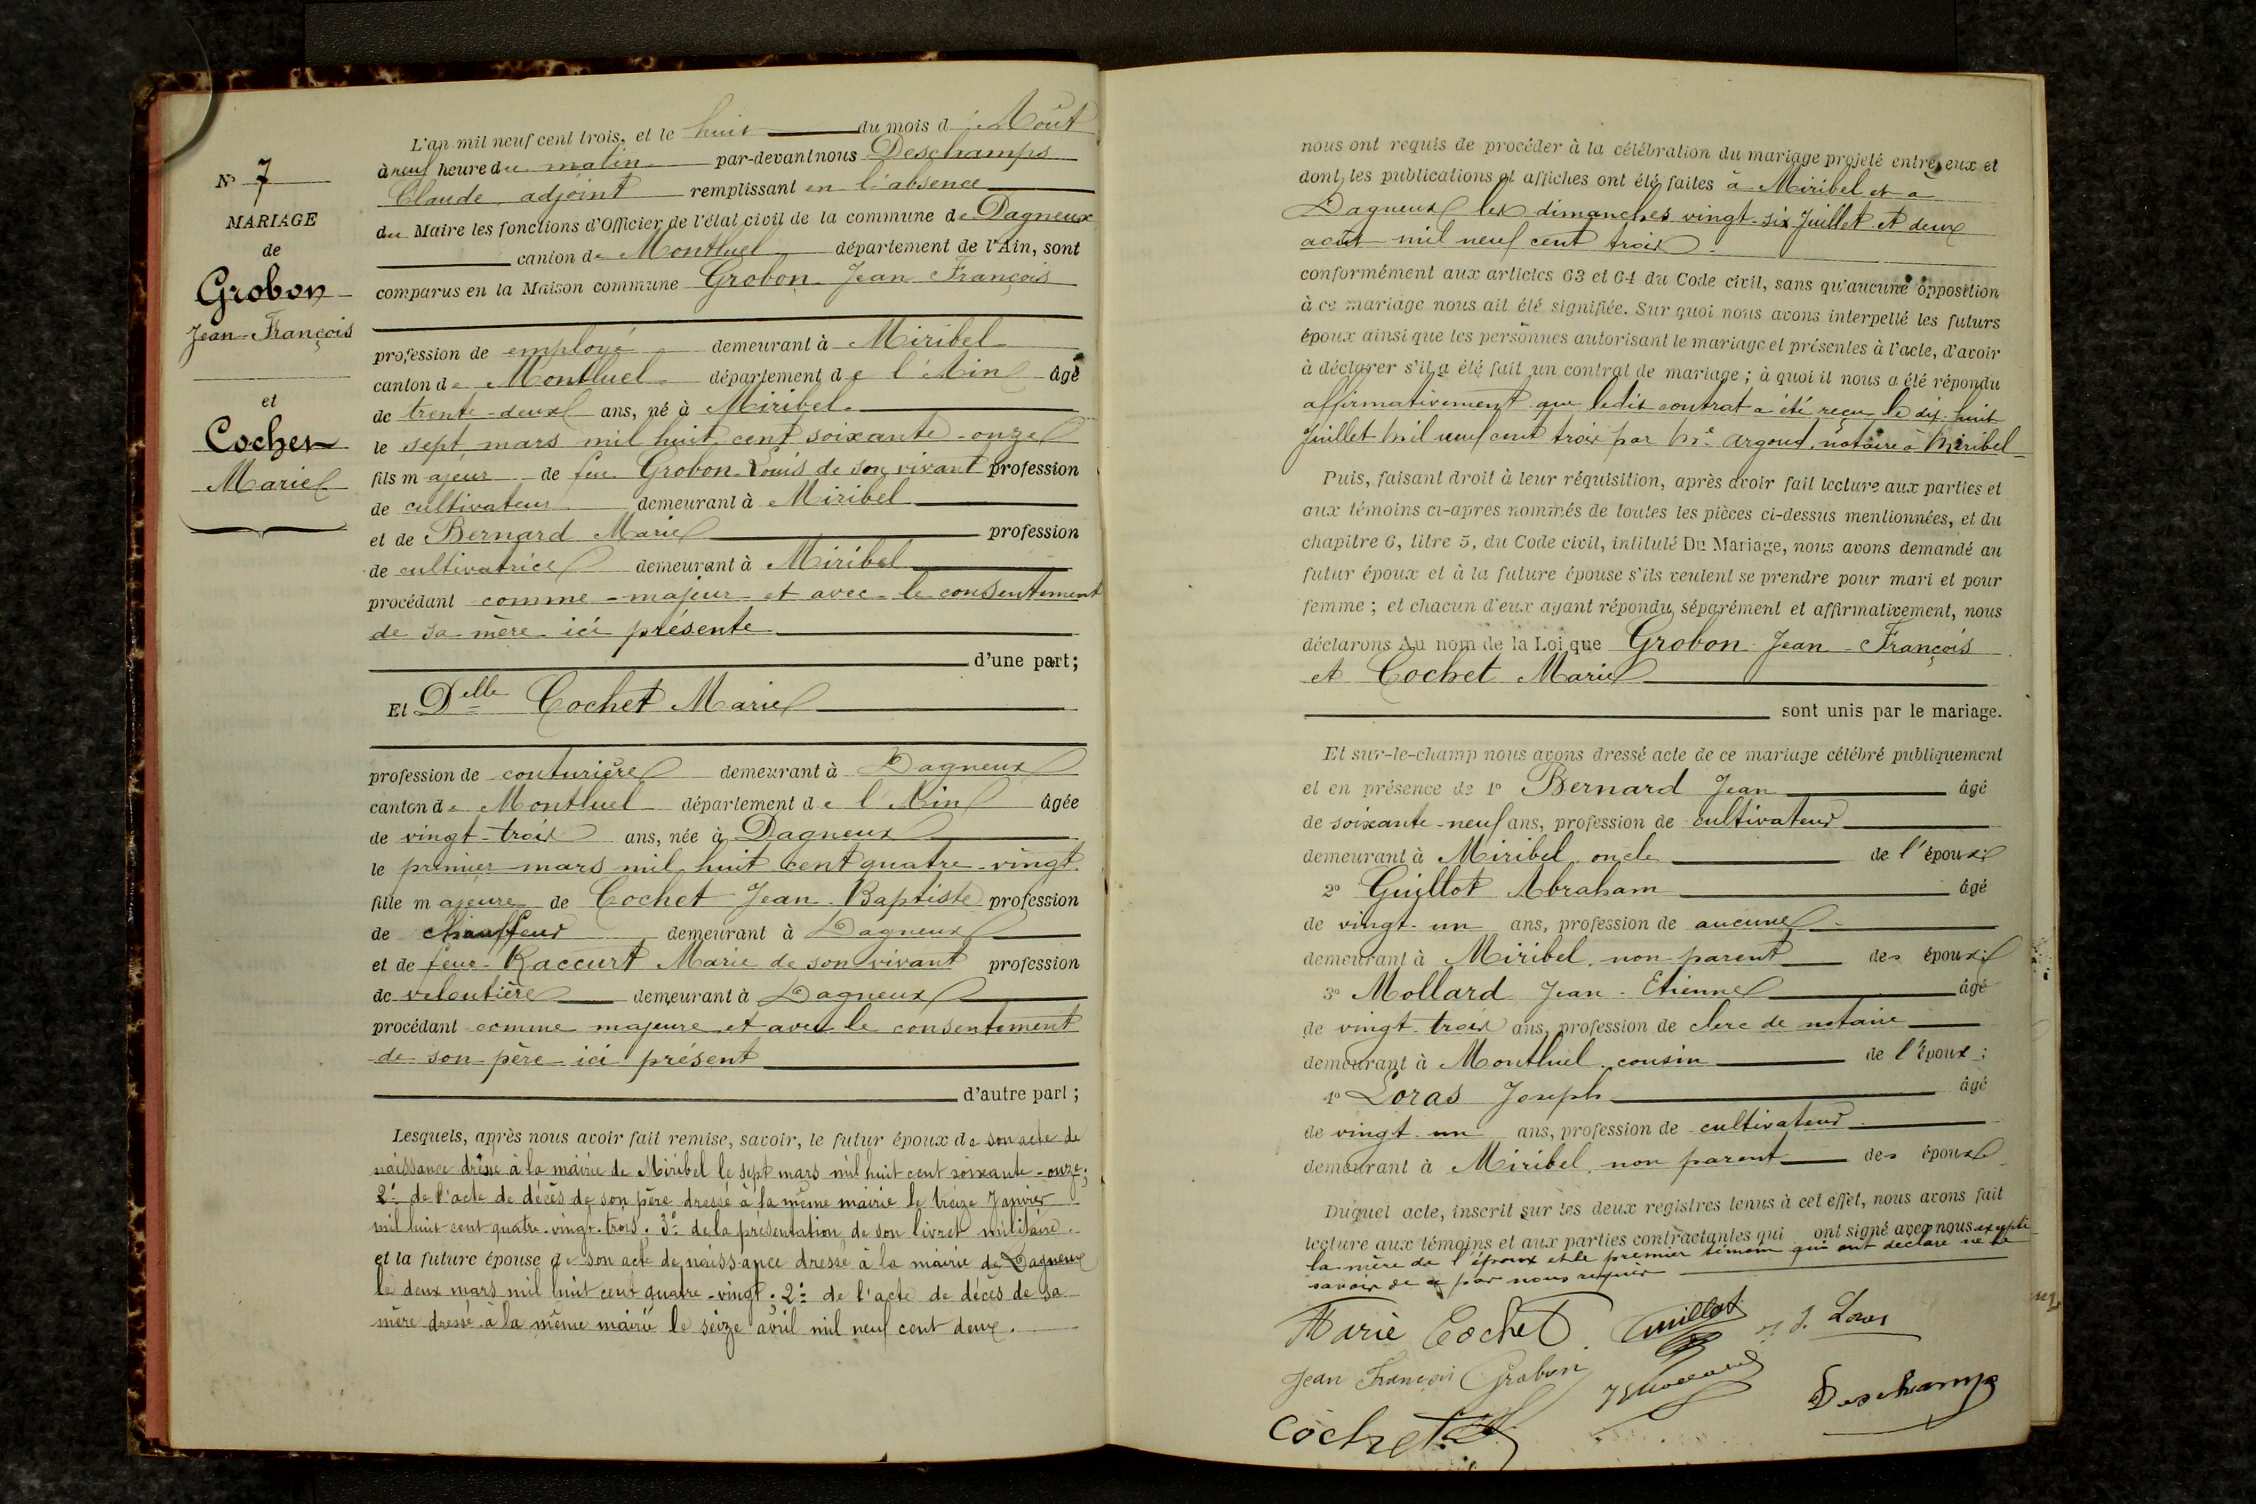 N° 7
MARIAGE
de
Grobon
Jean-François
et
Cochet
Marie
L'an mil neuf cent trois, et le huit du mois d'Août
à neuf heure du matin par-devant nous Deschamps
Claude, adjoint remplissant en l'absence
du Maire les fonctions d'Officier de l'état civil de la commune de Dagneux
canton de Montluel département de l'Ain, sont
comparus en la Maison commune Grobon Jean François
profession de employé demeurant à Miribel
canton de Montluel département de l'Ain âgé
de trente-deux ans, né à Miribel
le sept mars mil huit cent soixante-onze
fils majeur de feu Grobon Louis de son vivant profession
de cultivateur demeurant à Miribel
et de Bernard Marie profession
de cultivatrice demeurant à Miribel
procédant comme majeur et avec le consentement
de sa mère ici présente
d'une part;
Et Delle Cochet Marie
profession de couturière demeurant à Dagneux
canton de Montluel département de l'Ain âgée
de vingt-trois ans, née à Dagneux
le premier mars mil huit cent quatre-vingt
fille majeure de Cochet Jean Baptiste profession
de chauffeur demeurant à Dagneux
et de feue Raccurt Marie de son vivant profession
de veloutière demeurant à Dagneux
procédant comme majeure et avec le consentement
de son père ici présent
d'autre part;
Lesquels, après nous avoir fait remise, savoir, le futur époux de son acte de
naissance dressé à la mairie de Miribel le sept mars mil huit cent soixante-onze;
2° de l'acte de décès de son père dressé à la même mairie le treize Janvier
mil huit cent quatre-vingt-trois; 3° de la présentation de son livret militaire.
et la future épouse de son acte de naissance dressé à la mairie de Dagneux
le deux mars mil huit cent quatre-vingt. 2° de l'acte de décès de sa
mère dressé à la même mairie le seize avril mil neuf cent deux.
nous ont requis de procéder à la célébration du mariage projeté entre eux et
dont les publications et affiches ont été faites à Miribel et à
Dagneux les dimanches vingt-six Juillet et deux
août mil neuf cent trois
conformément aux articles 63 et 64 du Code civil, sans qu'aucune opposition
à ce mariage nous ait été signifiée. Sur quoi nous avons interpellé les futurs
époux ainsi que les personnes autorisant le mariage et présentes à l'acte, d'avoir
à déclarer s'il a été fait un contrat de mariage; à quoi il nous a été répondu
affirmativement que ledit contrat a été reçu le dix-huit
Juillet mil neuf cent trois par Me Argoud, notaire à Miribel
Puis, faisant droit à leur réquisition, après avoir fait lecture aux parties et
aux témoins ci-après nommés de toutes les pièces ci-dessus mentionnées, et du
chapitre 6, titre 5, du Code civil, intitulé Du Mariage, nous avons demandé au
futur époux et à la future épouse s'ils veulent se prendre pour mari et pour
femme; et chacun d'eux ayant répondu séparément et affirmativement, nous
déclarons Au nom de la Loi que Grobon Jean-François
et Cochet Marie
sont unis par le mariage.
Et sur-le-champ nous avons dressé acte de ce mariage célébré publiquement
et en présence de 1° Bernard Jean âgé
de soixante-neuf ans, profession de cultivateur
demeurant à Miribel, oncle de l'époux;
2° Guillot Abraham âgé
de vingt-un ans, profession de aucune
demeurant à Miribel, non parent des époux;
3° Mollard Jean-Etienne âgé
de vingt-trois ans, profession de clerc de notaire
demeurant à Montluel, cousin de l'époux;
4° Loras Joseph âgé
de vingt-un ans, profession de cultivateur
demeurant à Miribel, non parent des époux
Duquel acte, inscrit sur les deux registres tenus à cet effet, nous avons fait
lecture aux témoins et aux parties contractantes qui ont signé avec nous excepté
la mère de l'époux et le premier témoin qui ont déclaré ne le
savoir de ce par nous requis
Marie Cochet Guillot J. Loras
Jean François Grobon Deschamps
Cochet